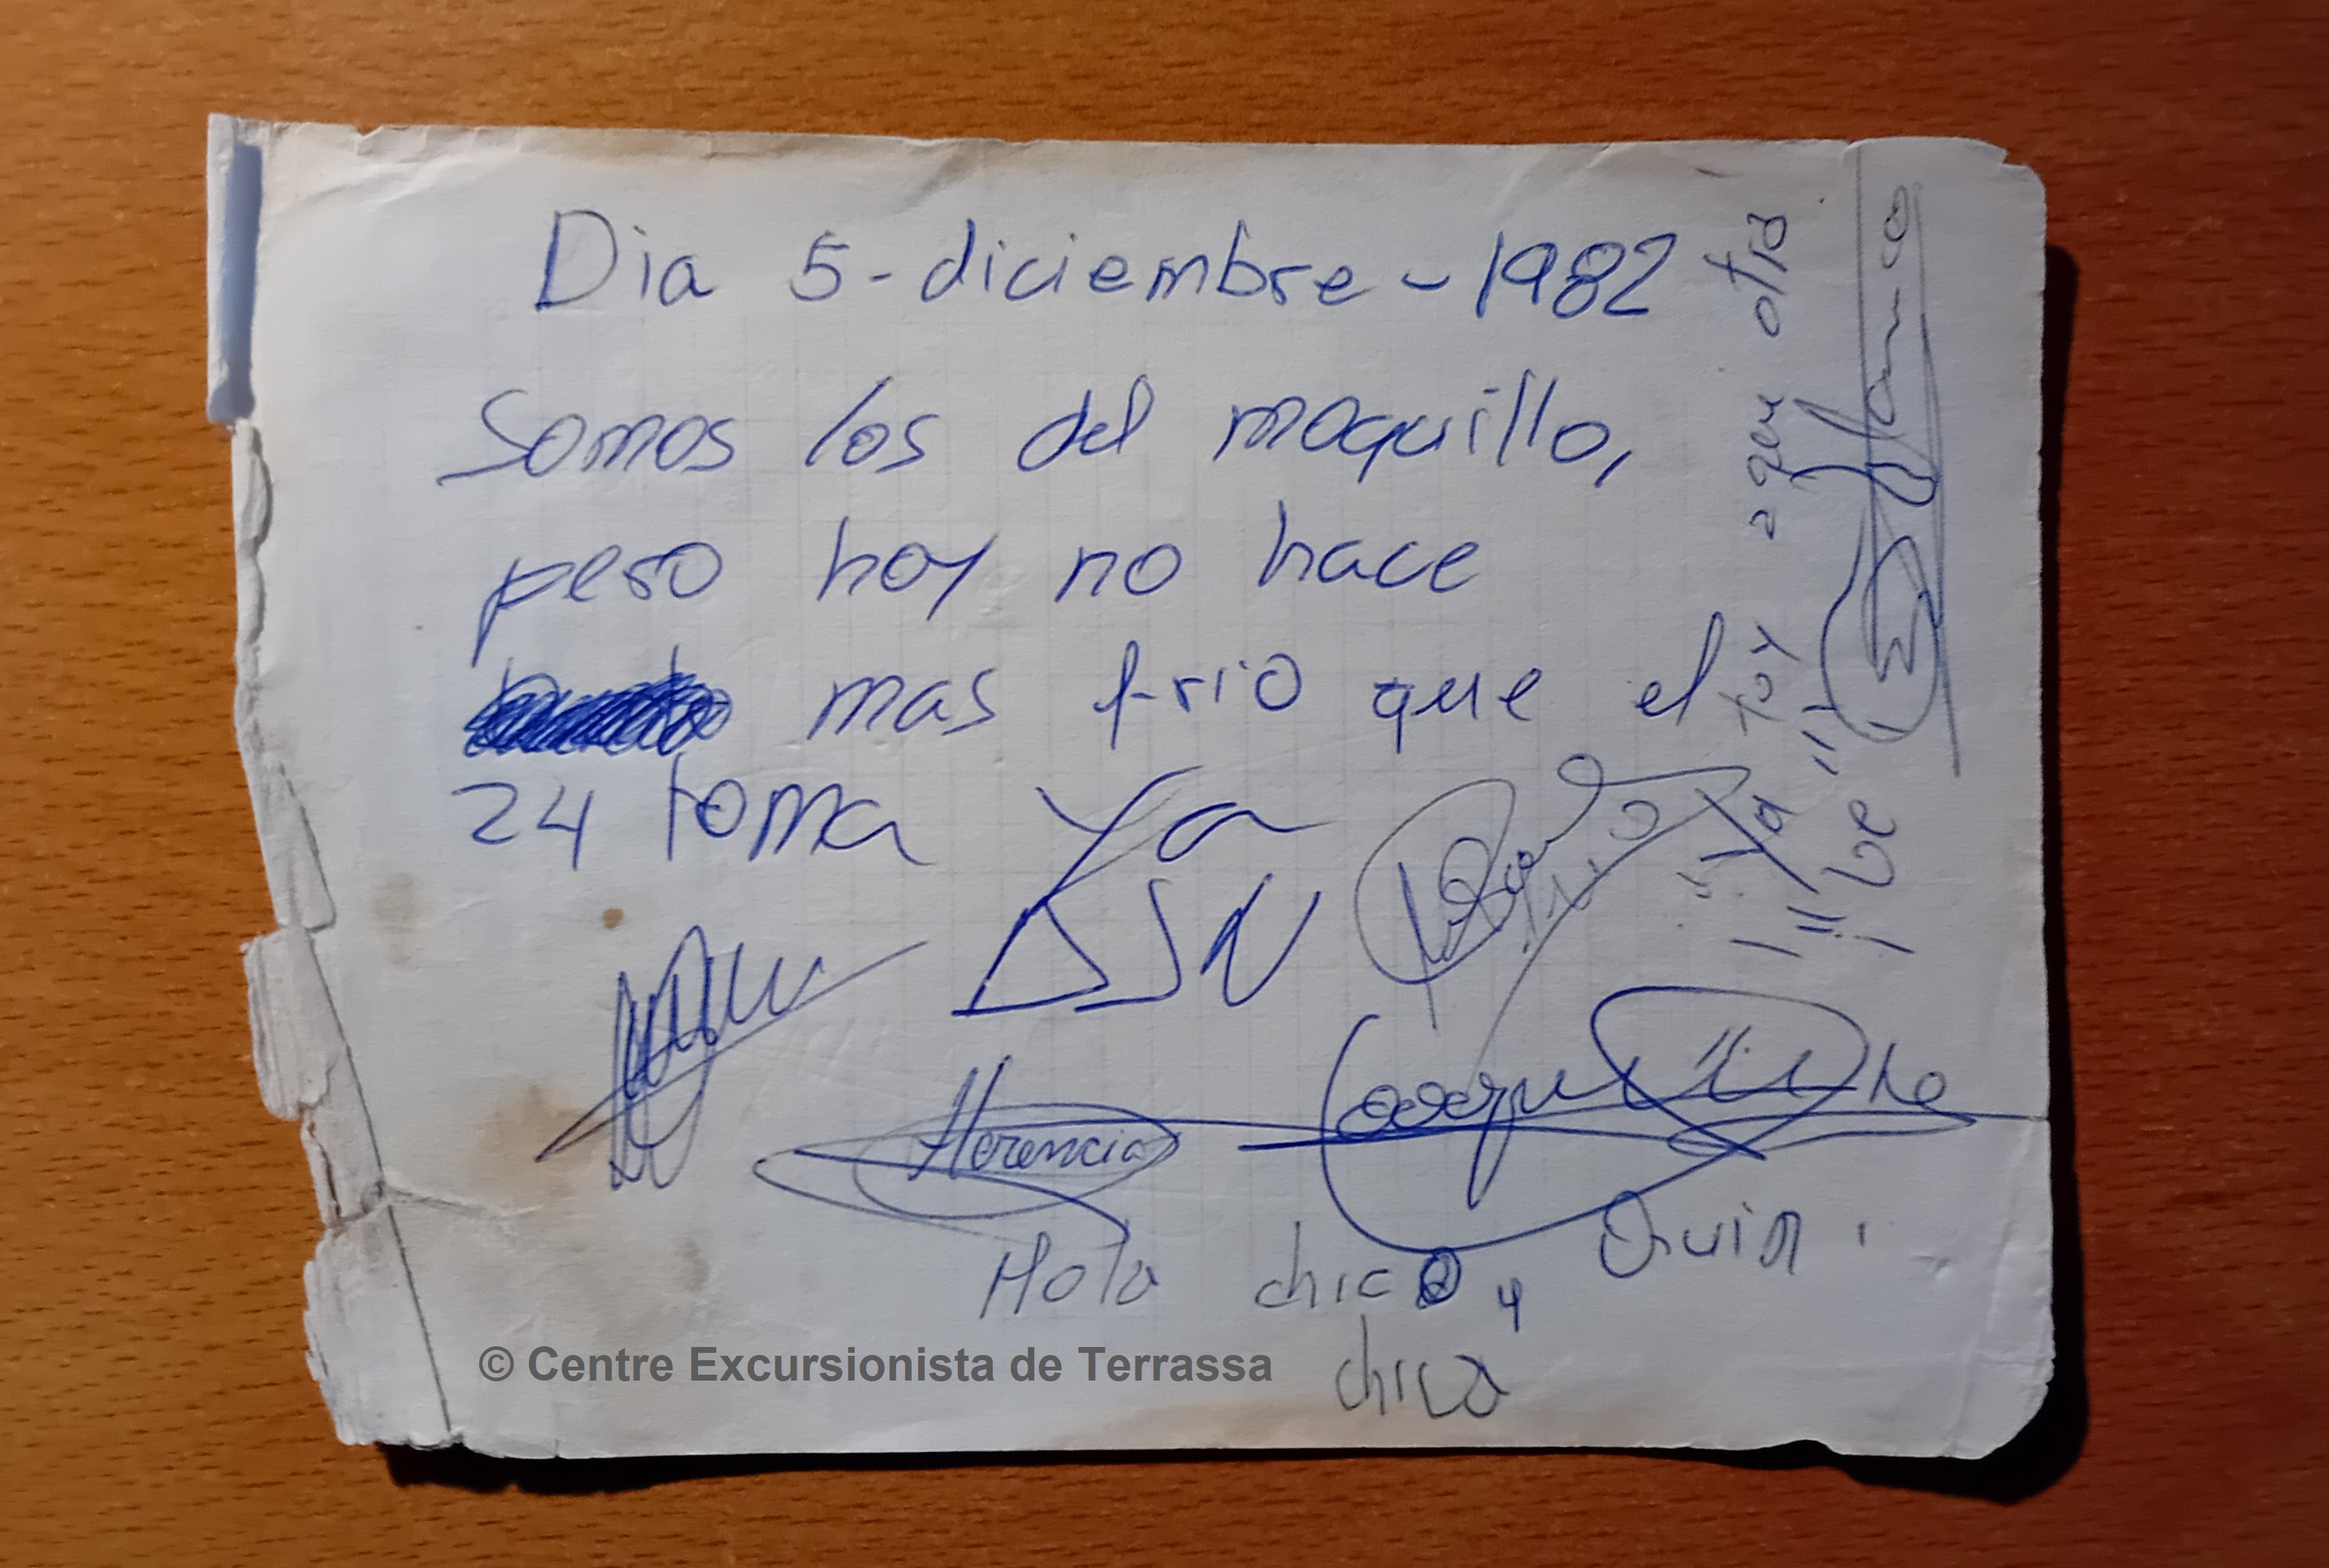 Dia 5-diciembre-1982
Somos los del moquillo,
pero hoy no hace
mas frio que el
24 toma Ya
Herencia
Hola chico, y Quin.
chica
"Ya toy aqui otra
be
© Centre Excursionista de Terrassa